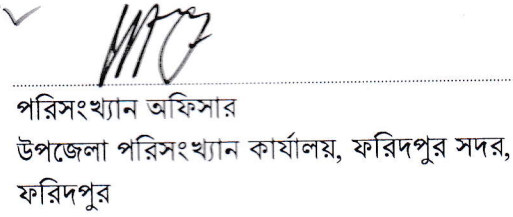 পরিসংখ্যান অফিসার
উপজেলা পরিসংখ্যান কার্যালয়, ফরিদপুর সদর,
ফরিদপুর